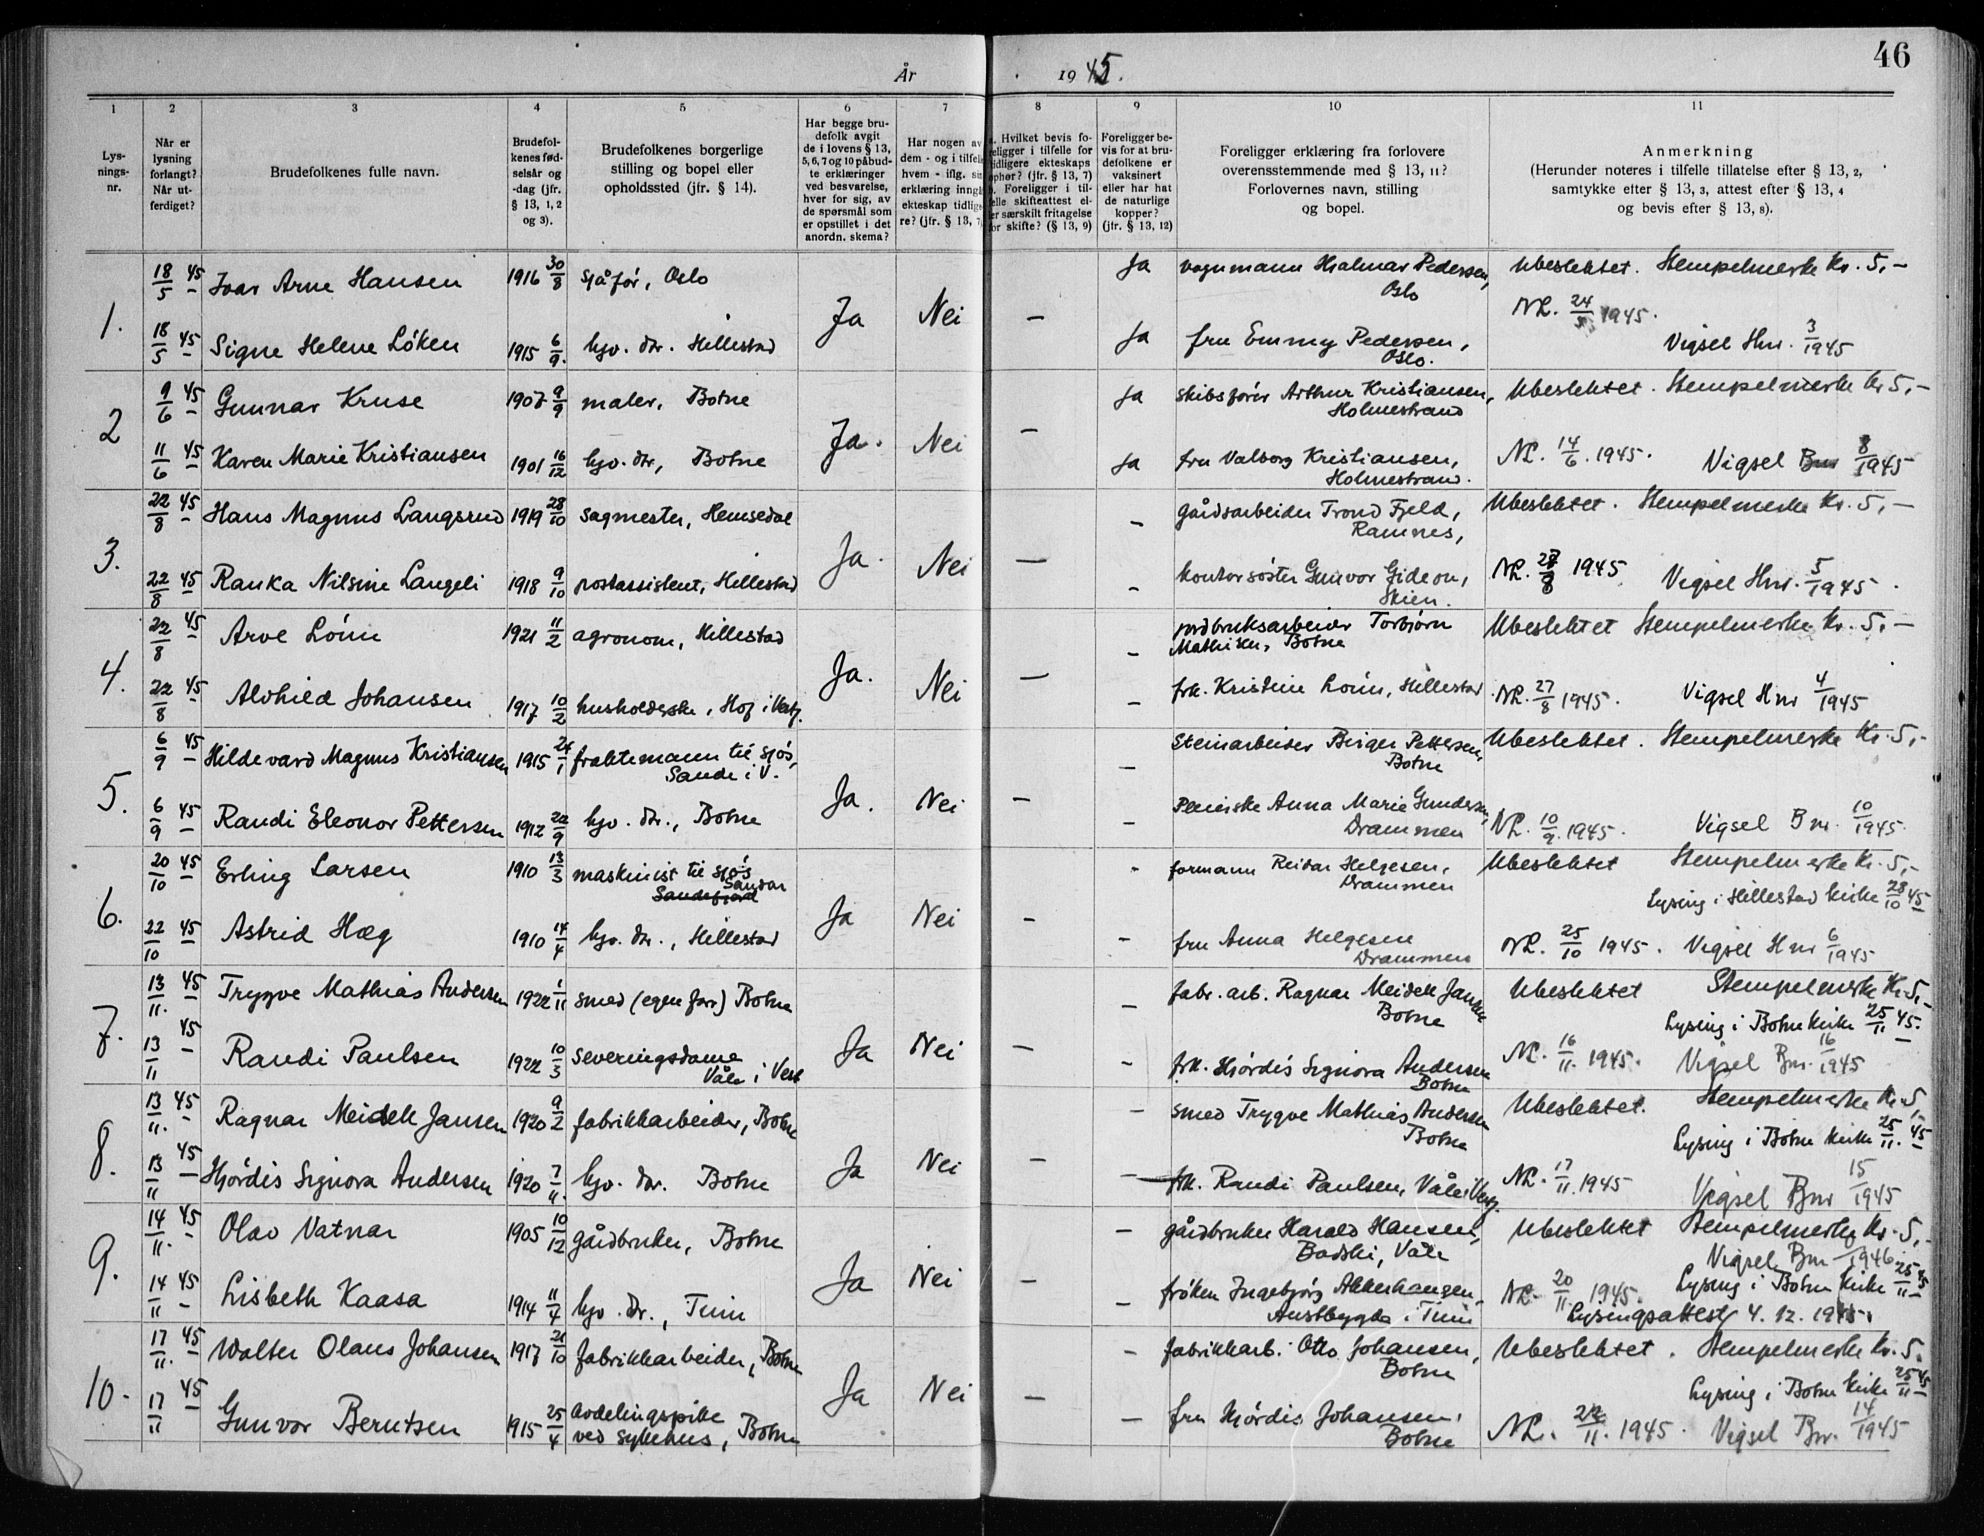 46
År 1945.
1 2 3 4 5 6 7 8 9 10 11
Lys-
nings-
nr.
Når er
lysning
forlangt?
Når ut-
ferdiget?
Brudefolkenes fulle navn.
Brudefol-
kenes fød-
selsår og
-dag (jfr.
§ 13, 1, 2
og 3).
Brudefolkenes borgerlige
stilling og bopel eller
opholdssted (jfr. § 14).
Har begge bru-
defolk avgit
de i lovens § 13,
5, 6, 7 og 10 påbud-
te erklæringer
ved besvarelse,
hver for sig, av
de spørsmål som
er opstillet i det
anordn. skema?
Har nogen av
dem - og i tilfelle
hvem - iflg. sin
erklæring inngått
ekteskap tidlige-
re? (jfr. § 13, 7)
a. Hvilket bevis fo-
religger i tilfelle for
tidligere ekteskaps
ophør? (jfr. § 13, 7)
b. Foreligger i til-
felle skifteattest el-
ler særskilt fritagelse
for skifte? (§ 13, 9)
Foreligger be-
vis for at bru-
defolkene er
vaksinert
eller har hat
de naturlige
kopper?
(jfr. § 13, 12)
Foreligger erklæring fra forlovere
overensstemmende med § 13, 11?
Forlovernes navn, stilling
og bopel.
Anmerkning
(Herunder noteres i tilfelle tillatelse efter § 13, 2,
samtykke efter § 13, 3, attest efter § 13, 4
og bevis efter § 13, 8).
1. 18/5 45 Ivar Arne Hansen 1916 30/8 sjåför, Oslo Ja Nei — Ja vognmann Hjalmar Pedersen, Ubeslektet. Stempelmerke Kr. 5,-
Oslo
NL. 24/5 1945.
18/5 45 Signe Helene Löken 1915 6/9. hjv. dtr. Hillestad Ja fru Emmy Pedersen, Vigsel Hnr. 3/1945
Oslo.
2 9/6 45 Gunnar Kruse 1907 9/9 maler, Botne Ja. Nei — Ja skibsförer Arthur Kristiansen, Ubeslektet. Stempelmerke kr 5,-
Holmestrand
11/6 45 Karen Marie Kristiansen 1901 16/12 hjv. dtr, Botne Ja fru Valborg Kristiansen, NL. 14/6. 1945. Vigsel Bnr 8/1945
Holmestrand.
3. 22/8 45 Hans Magnus Langsrud 1919 28/10 sagmester, Hemsedal Ja. Nei — - gårdsarbeider Trond Fjeld, Ubeslektet. Stempelmerke Kr. 5,-
Ramnes,
22/8 45 Ranka Nilsine Langeli 1918 9/10 postassistent, Hillestad - kontorsöster Gunvor Gideon, NL. 27/8 1945 Vigsel Hnr. 5/1945.
Skien.
4. 22/8 45 Arve Lönn 1921 11/2 agronom, Hillestad Ja. Nei — - jordbruksarbeider Torbjörn Ubeslektet Stempelmerke kr. 5,-
Mathisen, Botne
22/8 45 Alvhild Johansen 1917 10/2 husholderske, Hof i Vestf. - frk. Kristine Lönn, Hillestad NL. 27/8 1945. Vigsel Hnr 4/1945
5. 6/9 45 Hildevard Magnus Kristiansen 1915 24/1 fraktemann til sjös, Ja. Nei — - Steinarbeider Birger Pettersen, Ubeslektet. Stempelmerke Kr. 5,-
Sande i V. Botne
6/9 45 Randi Eleonor Pettersen 1912 22/9 hjv. dtr., Botne - Anna Marie Gundersen, NL. 10/9. 1945. Vigsel Bnr. 10/1945.
Drammen
6. 20/10 45 Erling Larsen 1910 13/3 maskinist til sjös Ja Nei — - formann Reidar Helgesen, Ubeslektet Stempelmerke Kr. 5,-
Sandar
Sandefjord Drammen Lysing i Hillestad kirke 28/10 45
22/10 45 Astrid Hæg 1910 14/4 hjv. dtr., Hillestad - fru Anna Helgesen NL. 25/10 1945. Vigsel Hnr 6/1945
Drammen
7. 13/11. 45 Trygve Mathias Andersen 1922 1/11 smed (egen forr) Botne Ja Nei — - fabr. arb. Ragnar Meidell Jansen Ubeslektet Stempelmerke Kr. 5,-
Botne Lysing i Botne kirke 25/11 45.
13/11 45 Randi Paulsen 1922 10/3 serveringsdame - frk. Hjördis Signora Andersen NL. 16/11. 1945. Vigsel Bnr. 16/1945
Våle i Vestf Botne
8. 13/11. 45 Ragnar Meidell Jansen 1920 9/2 fabrikkarbeider, Botne Ja Nei — - smed Trygve Mathias Andersen Ubeslektet. Stempelmerke Kr. 5,-
Botne Lysing i Botne kirke 25/11. 45
13/11 45 Hjördis Signora Andersen 1920 7/11. hjv. dtr. Botne - frk. Randi Paulsen, Våle i Vestf. NL. 17/11. 1945 Vigsel Bnr 15/1945
9. 14/11. 45 Olav Vatnar 1905 10/12 gårdbruker, Botne Ja Nei — - gårdbruker Harald Hansen, Ubeslektet Stempelmerke Kr. 5,-
Våle Vigsel Bnr /1946
14/11 45 Lisbeth Kaasa 1914 11/4 hjv. dtr., Tinn - fröken Ingebjörg Akkerhaugen, NL. 20/11. 1945. Lysing i Botne kirke 25/11 45
Austbygda i Tinn Lysingsattest 4. 12. 1945.
10. 17/11. 45 Walter Olaus Johansen 1917 21/10 fabrikkarbeider, Botne Ja Nei — - fabrikkarb. Otto Johansen, Ubeslektet. Stempelmerke Kr. 5,
Botne Lysing i Botne kirke 25/11 45
17/11 45 Gunvor Berntsen 1915 25/4 avdelingspike - fru Hjördis Johansen, NL. 22/11. 1945. Vigsel Bnr. 14/1945
ved sykehus, Botne Botne